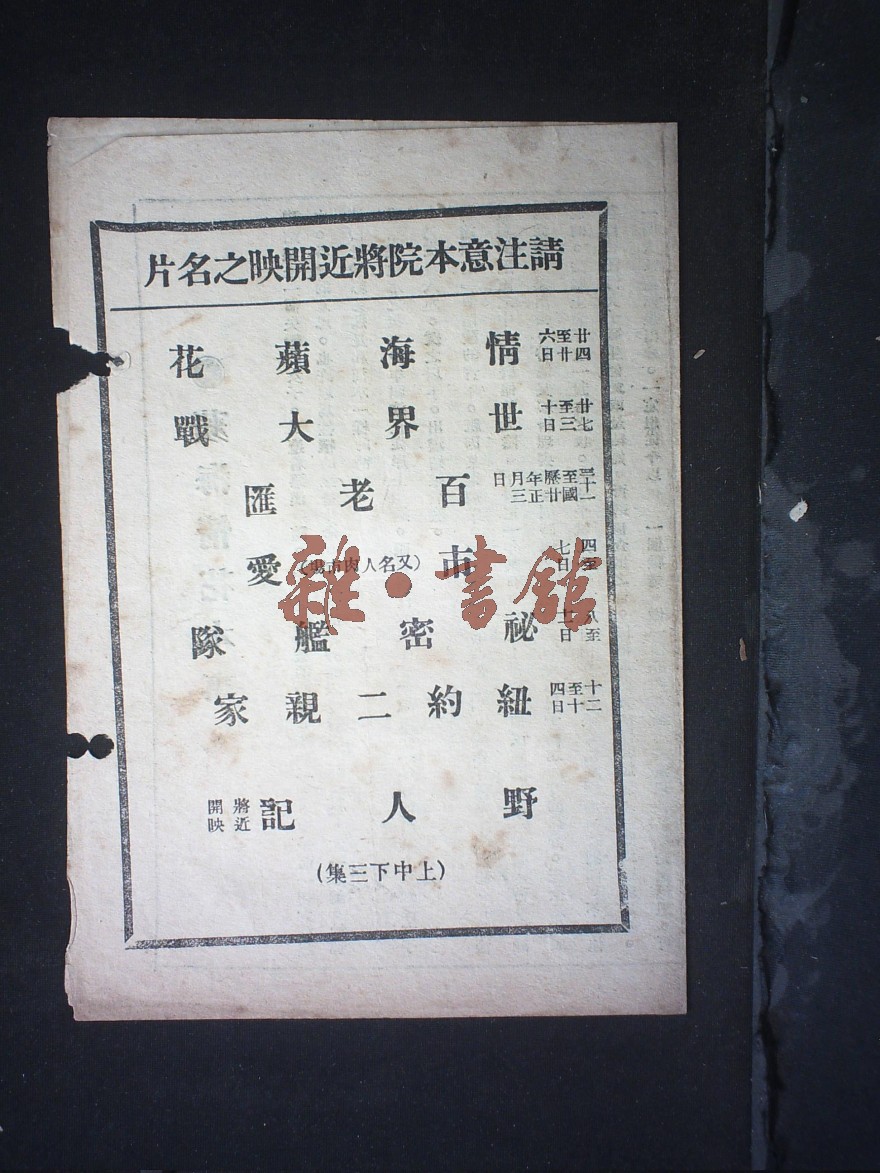 請注意本院將近開映之名片
廿四至廿六日 情海蘋花
廿七至三十日 世界大戰
三十一至國歷廿年正月三日 百老匯
四至七日 市(又名人肉市場)愛
八至十一日 祕密艦隊
十二至十四日 紐約二親家
野人記 將近開映
(上中下三集)
雜·書館